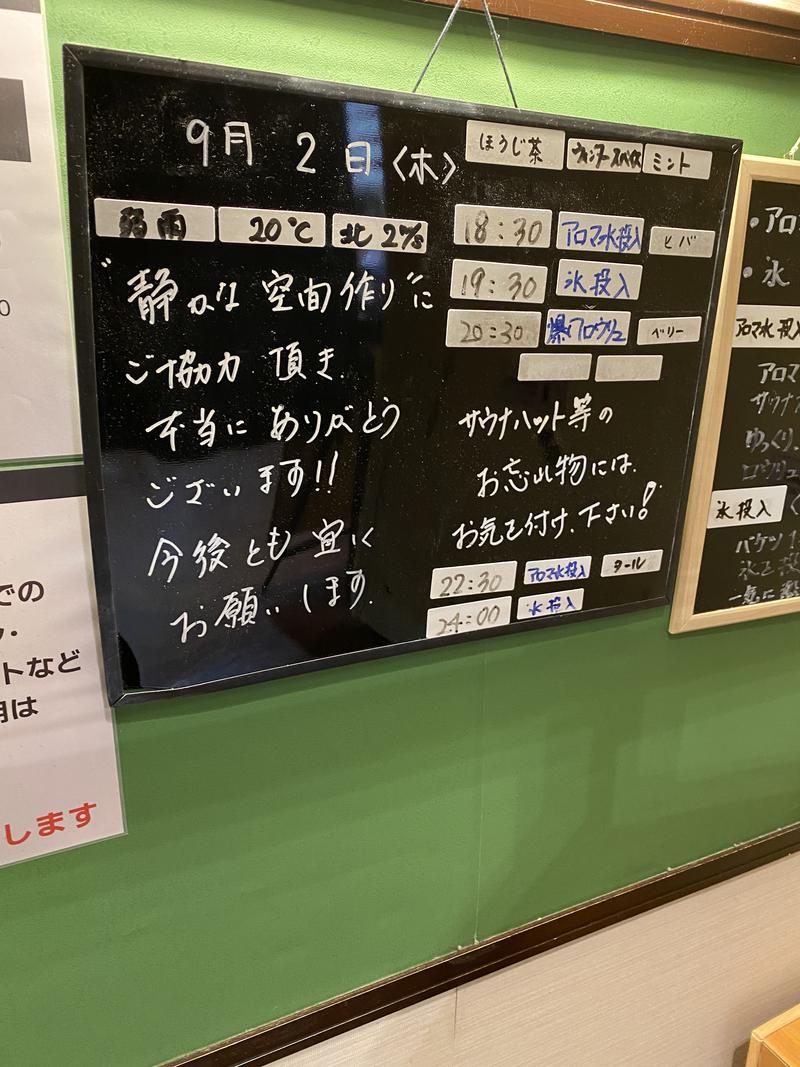 9月 2日〈木〉
ほうじ茶 ウィンタースパイス ミント
弱雨 20℃ 北2㎧
18:30 アロマ水投入 ヒバ
19:30 氷投入
20:30 爆风ロウリュ ベリー
"静かな空間作り"に
ご協力頂き.
本当にありがとう
ございます!!
今後とも宜しく
お願いします.
サウナハット等の
お忘れ物には.
お気を付け.下さい!
22:30 アロマ水投入 タール
24:00 氷投入
・アロ
・氷
アロマ水投入
アロマ
サウナ
ゆっくり.
ロウリュ
氷投入
バケツ1
氷を投
一気に
での
トなど
用は
します